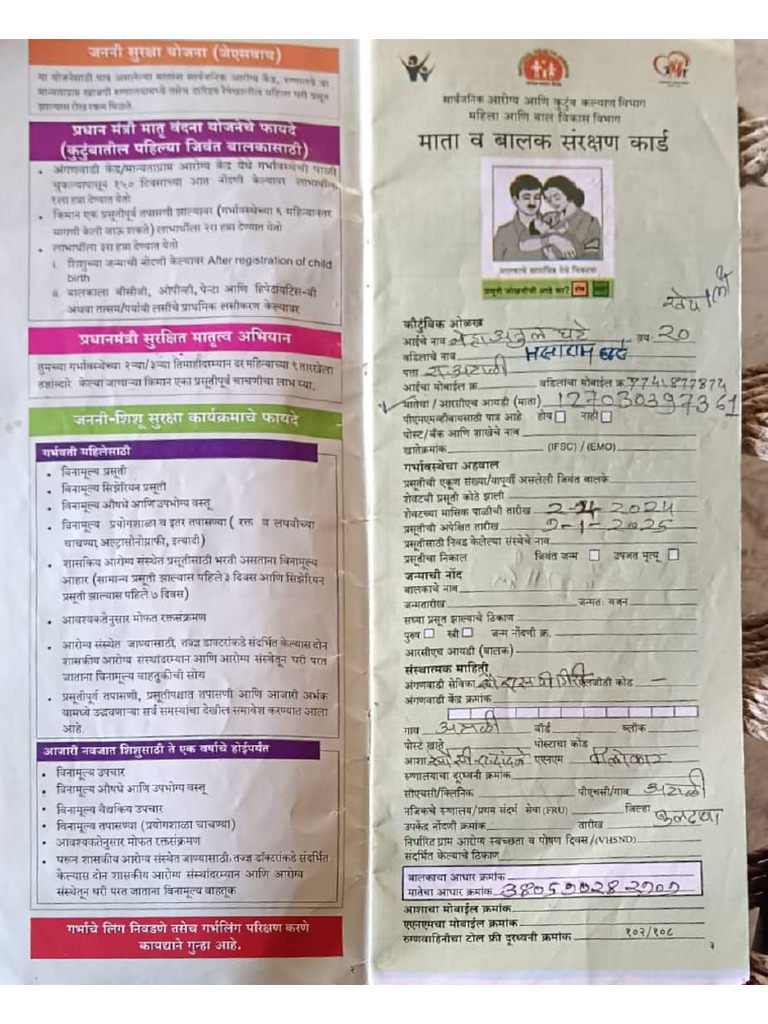 जननी सुरक्षा योजना (जेएसवाय)
या योजनेसाठी पात्र असलेल्या मातांना सार्वजनिक आरोग्य केंद्र, रुग्णालये वा
मान्यताप्राप्त खाजगी रुग्णालयामध्ये तसेच दारिद्र्य रेषेखालील महिला घरी प्रसूत
झाल्यास रोख रक्कम मिळते.
प्रधान मंत्री मातृ वंदना योजनेचे फायदे
(कुटुंबातील पहिल्या जिवंत बालकासाठी)
• अंगणवाडी केंद्र/मान्यताप्राप्त आरोग्य केंद्र येथे गर्भावस्थेची पाळी
चुकल्यापासून १५० दिवसाच्या आत नोंदणी केल्यावर लाभार्थीला
१ला हप्ता देण्यात येतो
• किमान एक प्रसूतीपूर्व तपासणी झाल्यावर (गर्भावस्थेच्या ६ महिन्यानंतर
मागणी केली जाऊ शकते) लाभार्थीला २रा हप्ता देण्यात येतो
• लाभार्थीला ३रा हप्ता देण्यात येतो
i. शिशुच्या जन्माची नोंदणी केल्यावर After registration of child
birth
ii. बालकाला बीसीजी, ओपीव्ही, पेन्टा आणि हिपेटायटिस-बी
अथवा तत्सम/पर्यायी लसींचे प्राथमिक लसीकरण केल्यावर
प्रधानमंत्री सुरक्षित मातृत्व अभियान
तुमच्या गर्भावस्थेच्या २ऱ्या/३ऱ्या तिमाहीदरम्यान दर महिन्याच्या ९ तारखेला
तज्ञांव्दारे केल्या जाणाऱ्या किमान एका प्रसूतीपूर्व चाचणीचा लाभ घ्या.
जननी-शिशू सुरक्षा कार्यक्रमाचे फायदे
गर्भवती महिलेसाठी
• विनामूल्य प्रसूती
• विनामूल्य सिझेरियन प्रसूती
• विनामूल्य औषधे आणि उपभोग्य वस्तू
• विनामूल्य प्रयोगशाळा व इतर तपासण्या ( रक्त व लघवीच्या
चाचण्या, अल्ट्रासोनोग्राफी, इत्यादी)
• शासकिय आरोग्य संस्थेत प्रसूतीसाठी भरती असताना विनामूल्य
आहार (सामान्य प्रसूती झाल्यास पहिले ३ दिवस आणि सिझेरियन
प्रसूती झाल्यास पहिले ७ दिवस)
• आवश्यकतेनुसार मोफत रक्तसंक्रमण
• आरोग्य संस्थेत जाण्यासाठी, तज्ज्ञ डाक्टरांकडे संदर्भित केल्यास दोन
शासकीय आरोग्य संस्थांदरम्यान आणि आरोग्य संस्थेतून घरी परत
जाताना विनामूल्य वाहतुकीची सोय
• प्रसूतीपूर्व तपासणी, प्रसूतीपश्चात तपासणी आणि आजारी अर्भक
यामध्ये उद्धवणाऱ्या सर्व समस्यांचा देखील समावेश करण्यात आला
आहे.
आजारी नवजात शिशुसाठी ते एक वर्षाचे होईपर्यंत
• विनामूल्य उपचार
• विनामूल्य औषधे आणि उपभोग्य वस्तू
• विनामूल्य वैद्यकिय उपचार
• विनामूल्य तपासण्या (प्रयोगशाळा चाचण्या)
• आवश्यकतेनुसार मोफत रक्तसंक्रमण
• घरुन शासकीय आरोग्य संस्थेत जाण्यासाठी, तज्ञ डॉक्टरांकडे संदर्भित
केल्यास दोन शासकीय आरोग्य संस्थांदरम्यान आणि आरोग्य
संस्थेतून घरी परत जाताना विनामूल्य वाहतूक
गर्भाचे लिंग निवडणे तसेच गर्भलिंग परिक्षण करणे
कायद्याने गुन्हा आहे.
२
सार्वजनिक आरोग्य आणि कुटुंब कल्याण विभाग
महिला आणि बाल विकास विभाग
माता व बालक संरक्षण कार्ड
प्रसूती जोखमीची आहे का?
कौटुंबिक ओळख
आईचे नाव नेहा अतुल घटे वय 20
वडिलांचे नाव
पत्ता रा. अटाळी
आईचा मोबाईल क्र. वडिलांचा मोबाईल क्र. 7741877874
मातेचा / आरसीएच आयडी (माता) 127030397361
पीएमएमव्हीवायसाठी पात्र आहे होय नाही
पोस्ट/बँक आणि शाखेचे नाव
खातेक्रमांक (IFSC) / (EMO)
गर्भावस्थेचा अहवाल
प्रसूतीची एकूण संख्या/यापूर्वी असलेली जिवंत बालके
शेवटची प्रसूती कोठे झाली
शेवटच्या मासिक पाळीची तारीख 2-4-2024
प्रसूतीची अपेक्षित तारीख 9-1-2025
प्रसूतीसाठी निवड केलेल्या संस्थेचे नाव
प्रसूतीचा निकाल जिवंत जन्म उपजत मृत्यू
जन्माची नोंद
बालकाचे नाव
जन्मतारीख जन्मतः वजन
सध्या प्रसूत झाल्याचे ठिकाण
पुरुष स्त्री जन्म नोंदणी क्र.
आरसीएच आयडी (बालक)
संस्थात्मक माहिती
अंगणवाडी सेविका
अंगणवाडी केंद्र क्रमांक
गाव अटाळी वॉर्ड ब्लॉक
पोस्ट खाते पोस्टाचा कोड
आशा एएनएम
रुग्णालयाचा दूरध्वनी क्रमांक
सीएचसी/क्लिनिक पीएचसी/गाव अटाळी
नजिकचे रुग्णालय/प्रथम संदर्भ सेवा (FRU) जिल्हा बुलढाणा
उपकेंद्र नोंदणी क्रमांक तारीख
निर्धारित ग्राम आरोग्य स्वच्छता व पोषण दिवस /(VHSND)
संदर्भित केल्याचे ठिकाण
बालकाचा आधार क्रमांक
मातेचा आधार क्रमांक
आशाचा मोबाईल क्रमांक
एएनएमचा मोबाईल क्रमांक
रुग्णवाहिनीचा टोल फ्री दूरध्वनी क्रमांक १०२/१०८
३